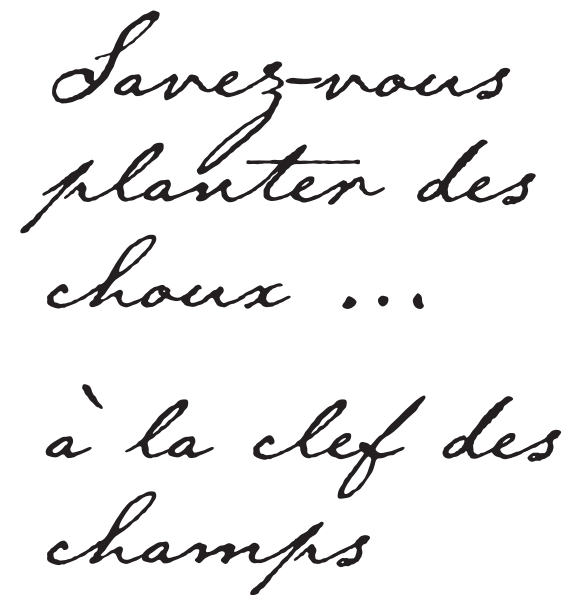 Savez-vous
planter des
choux ...
à la clef des
champs